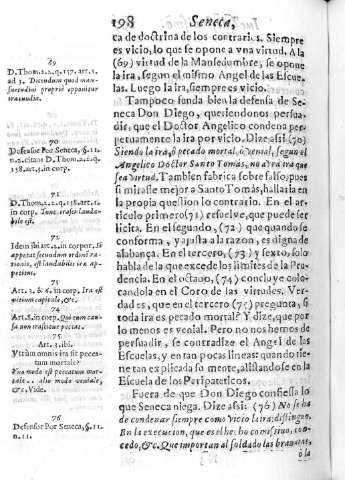 198 Seneca,
ca de doctrina de los contrarios. Siempre
es vicio, lo que se opone a vna virtud. A la
(69) virtud de la Mansedumbre, se opone
la ira, segun el mismo Angel de las Escue
las. Luego la ira, siempre es vicio.
Tampoco funda bien la defensa de Seneca
Don Diego, queriendonos persua-
dir, que el Doctor Angelico condena per-
petuamente la ira por vicio. Dize assi: (70)
Siendo la ira, ò pecado mortal, ò venial, segun el
Angelico Doctor Santo Tomàs, no avrà ira que
sea virtud. Tambien fabrica sobre falso; pues
si mirasse mejor a Santo Tomàs, hallaria en
la propia question lo contrario. En el ar-
ticulo primero (71) resuelve, que puede ser
licita. En el segundo, (72) que quando se
conforma, y ajusta a la razon, es digna de
alabança. En el tercero, (73) y sexto, solo
habla de la que excede los limites de la Pru
dencia. En el octauo, (74) concluye colo-
candola en el Coro de las virtudes. Ver-
dad es, que en el tercero (75) pregunta, si
toda ira es pecado mortal? Y dize, que por
lo menos es venial. Pero no nos hemos de
persuadir, se contradize el Angel de las
Escuelas, y en tan pocas lineas: quando tie-
ne tan explicada su mente, alistandose en la
Escuela de los Peripateticos.
Fuera de que Don Diego confiessa lo
que Seneca niega. Dize assi: (76) No se ha
de condenar siempre como Vicio la ira; distingo.
En la execucion, que es el hecho
cedo, &c. Que importan al soldado las brauatas,
ò la
69
D. Thom. 2. 2. q. 157. art. 2.
ad 3. Dicendum quod man-
suetudini proprie opponitur
iracundia.
70
Defensor Por Seneca, §. 11.
n. 2. citans D. Thom. 2. 2. q.
158. art. 3. in corp.
71
D. Thom. 2. 2. q. 158. art. 1.
in corp. Tunc irasci lauda-
bile est.
72
Idem ibi art. 2. in corpor. Si
appetat secundum ordinem ra-
tionis, est laudabilis ira ap-
petitus.
73
Art. 3. & 6. in corp. Ira est
vitium capitale, &c.
74
Art. 8. in corp. Qui cum cau-
sa non irascitur peccat.
75
Art. 3. ibi.
Vtrum omnis ira sit pecca-
tum mortale?
Vno modo est peccatum mor-
tale.. alio modo veniale,
&c. Vide.
76
Defensor Por Seneca, §. 11.
n. 11.